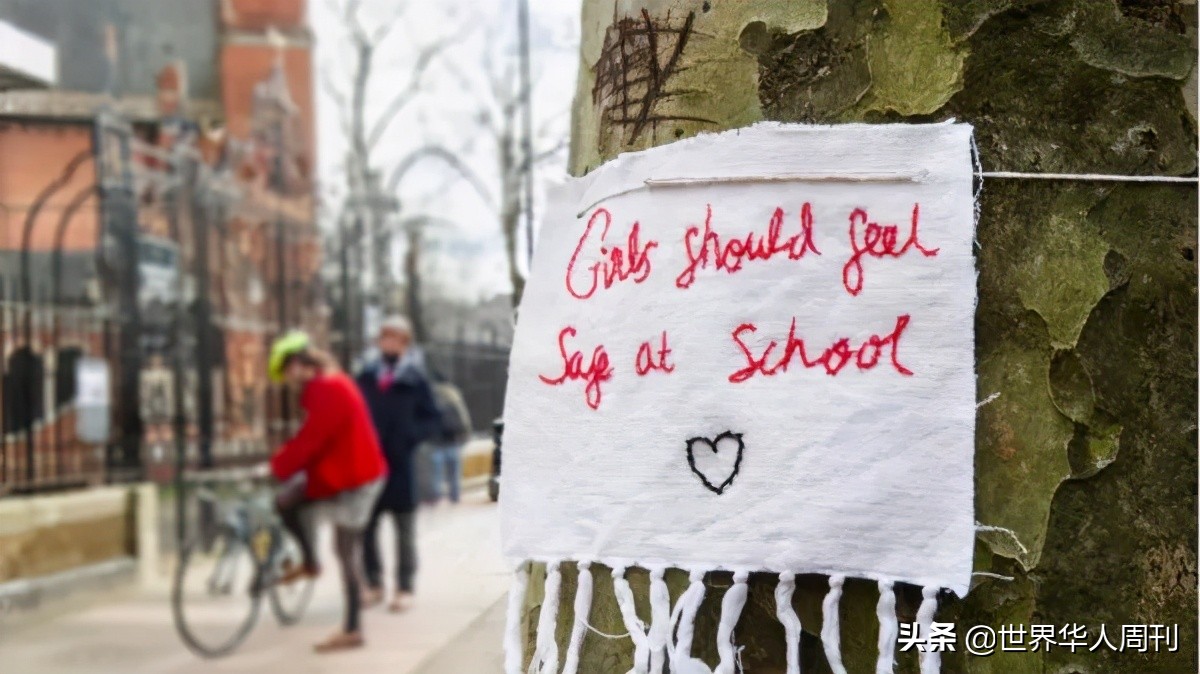 Girls should feel
Safe at School
头条 @世界华人周刊